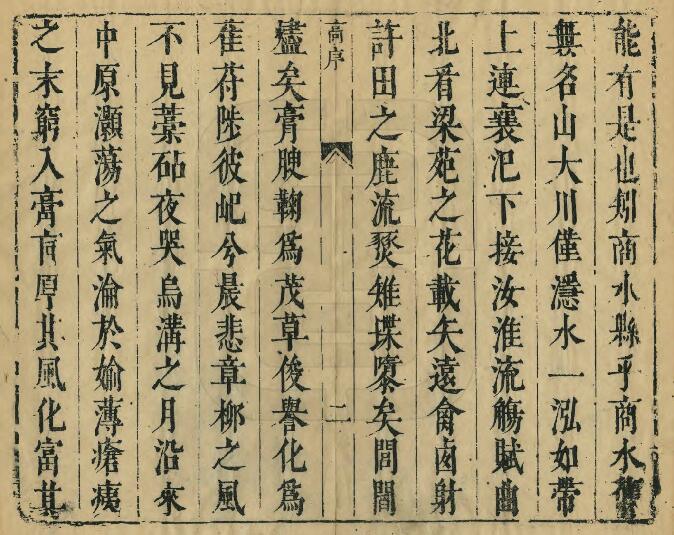 能有是也矧商水縣乎商水舊
無名山大川僅㶏水一泓如帶
上連襄汜下接汝淮流觴賦曲
北看梁苑之花載矢遠禽鹵射
許田之鹿流燹雉堞隳矣閭閻
高序
二
燼矣膏腴鞠爲茂草俊譽化爲
萑苻陟彼屺兮晨悲章栁之風
不見藁砧夜哭烏溝之月沿來
中原灝蕩之氣淪於婾薄瘡痍
之末窮入膏肓厚其風化富其